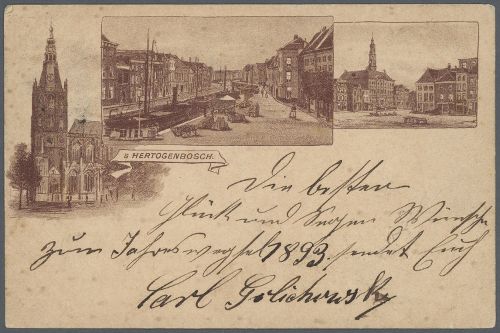 's HERTOGENBOSCH.
Die besten
Glück und Segen Wünsche
zum Jahreswechsel 1893. sendet Euch
Carl Golichowsky